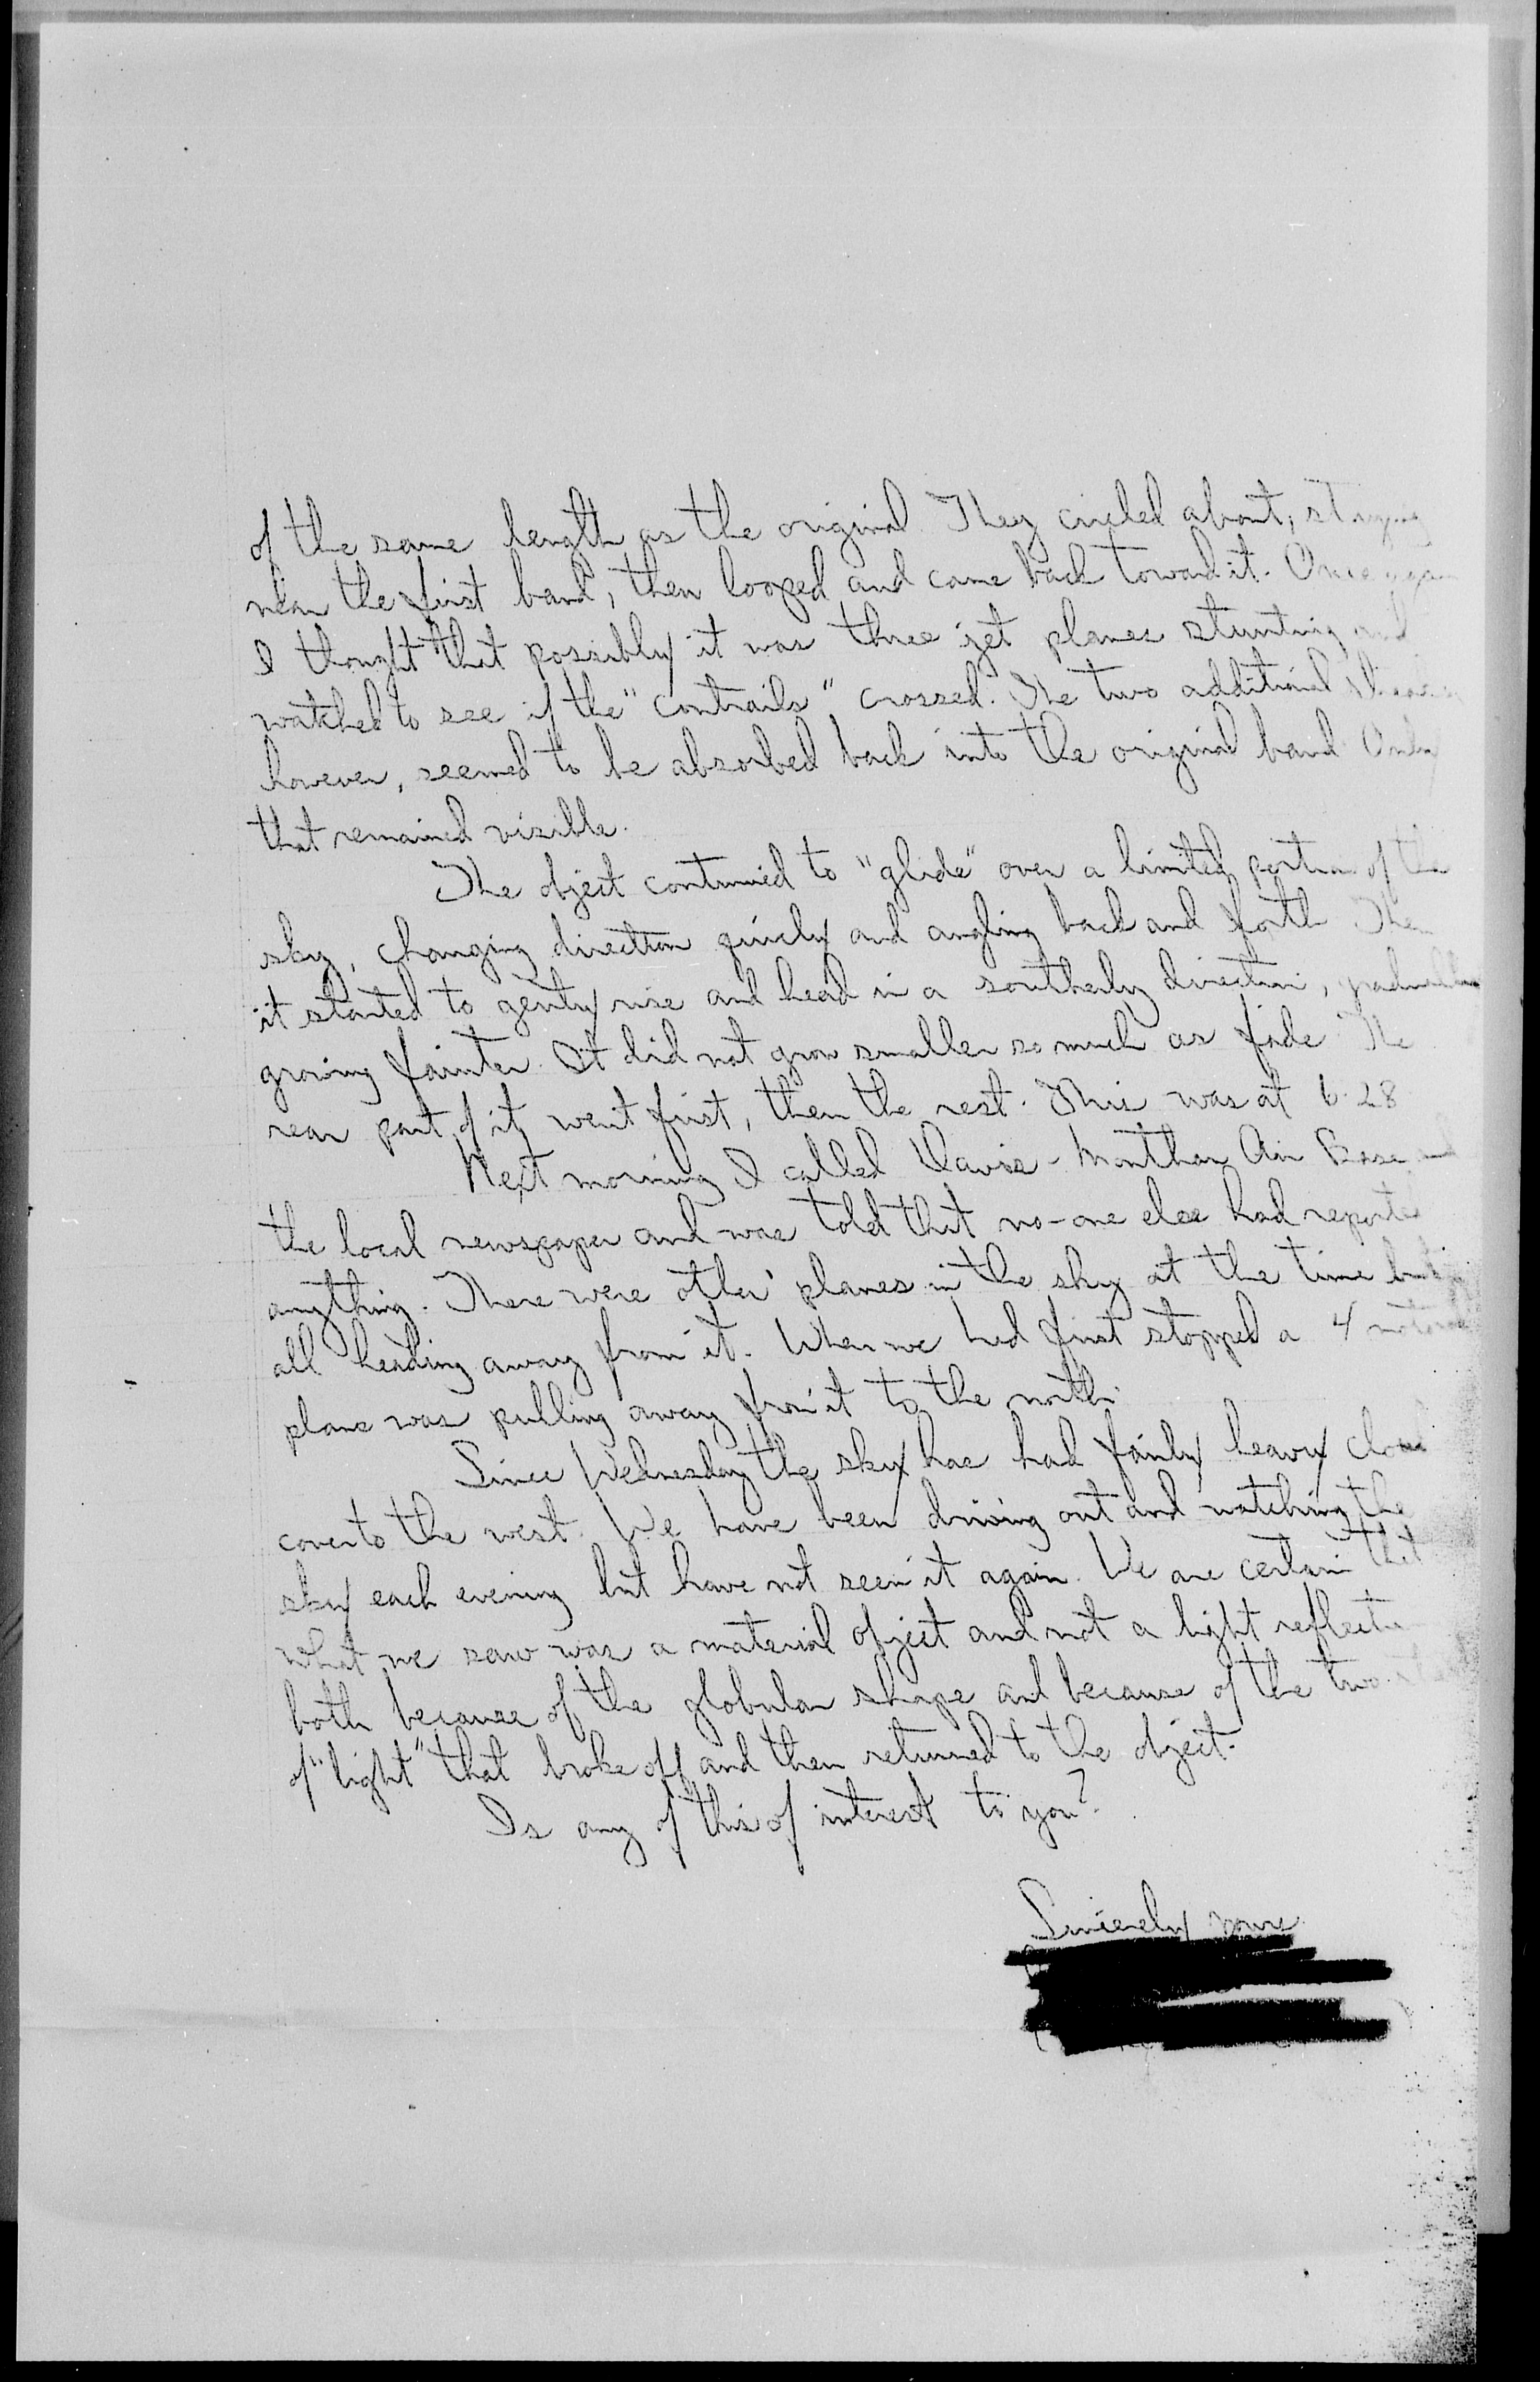 of the same length as the original. They circled about, staying
near the first band, then looped and came back toward it. Once again
I thought that possibly it was three jet planes stunting and
watched to see if the "contrails" crossed. The two additional
however, seemed to be absorbed back into the original band. Only
that remained visible.
The object continued to "glide" over a limited portion of the
sky, changing direction quickly and angling back and forth. Then
it started to gently rise and head in a southerly direction, gradually
growing fainter. It did not grow smaller so much as fade. The
rear part of it went first, then the rest. This was at 6:28
Next morning I called Davis-Monthan Air Base and
the local newspaper and was told that no-one else had reported
anything. There were other planes in the sky at the time but
all heading away from it. When we had first stopped a 4 motored
plane was pulling away from it to the north.
Since Wednesday the sky has had fairly heavy cloud
cover to the west. We have been driving out and watching the
sky each evening but have not seen it again. We are certain that
what we saw was a material object and not a light reflection
both because of the globular shape and because of the two
of "light" that broke off and then returned to the object.
Is any of this of interest to you?
Sincerely yours